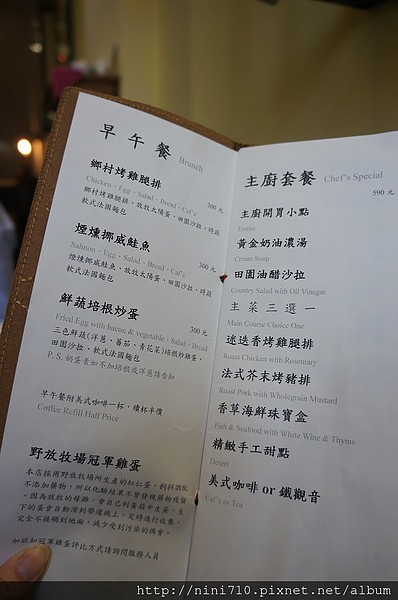 早午餐 Brunch
鄉村烤雞腿排
Chicken、Egg、Salad、Bread、Caf'e 300元
鄉村烤雞腿排、放放太陽蛋、田園沙拉、時蔬
軟式法國麵包
煙燻挪威鮭魚
Salmon、Egg、Salad、Bread、Caf'e 300元
煙燻挪威鮭魚、放放太陽蛋、田園沙拉、時蔬
軟式法國麵包
鮮蔬培根炒蛋
Fried Egg with bacon & vegetable、Salad、Bread 300元
三色鮮蔬(洋蔥、蕃茄、青花菜)培根炒雞蛋、
田園沙拉、軟式法國麵包
P.S. 奶蛋素如不加培根或洋蔥請告知
早午餐附美式咖啡一杯，續杯半價
Coffee Refill Half Price
野放牧場冠軍雞蛋
本店採用野放牧場所生產的紅仁蛋，飼料調配
不添加藥物，所以檢驗結果不曾發現藥物殘留
。因為放牧的母雞，會自己到蛋箱中生蛋，生
下的蛋會自動滑到帶運機上，定時進行收集，
完全不接觸到地面，減少受到污染的機會。
如欲知冠軍雞蛋評比方式請詢問服務人員
主廚套餐 Chef's Special
590元
主廚開胃小點
Entree
黃金奶油濃湯
Cream Soup
田園油醋沙拉
Country Salad with Oil Vinegar
主菜三選一
Main Coarse Choice One
迷迭香烤雞腿排
Roast Chicken with Rosemary
法式芥末烤豬排
Roast Pork with Wholegrain Mustard
香草海鮮珠寶盒
Fish & Seafood with White Wine & Thyme
精緻手工甜點
Desert
美式咖啡 or 鐵觀音
Caf'e or Tea
http://nini710.pixnet.net/album